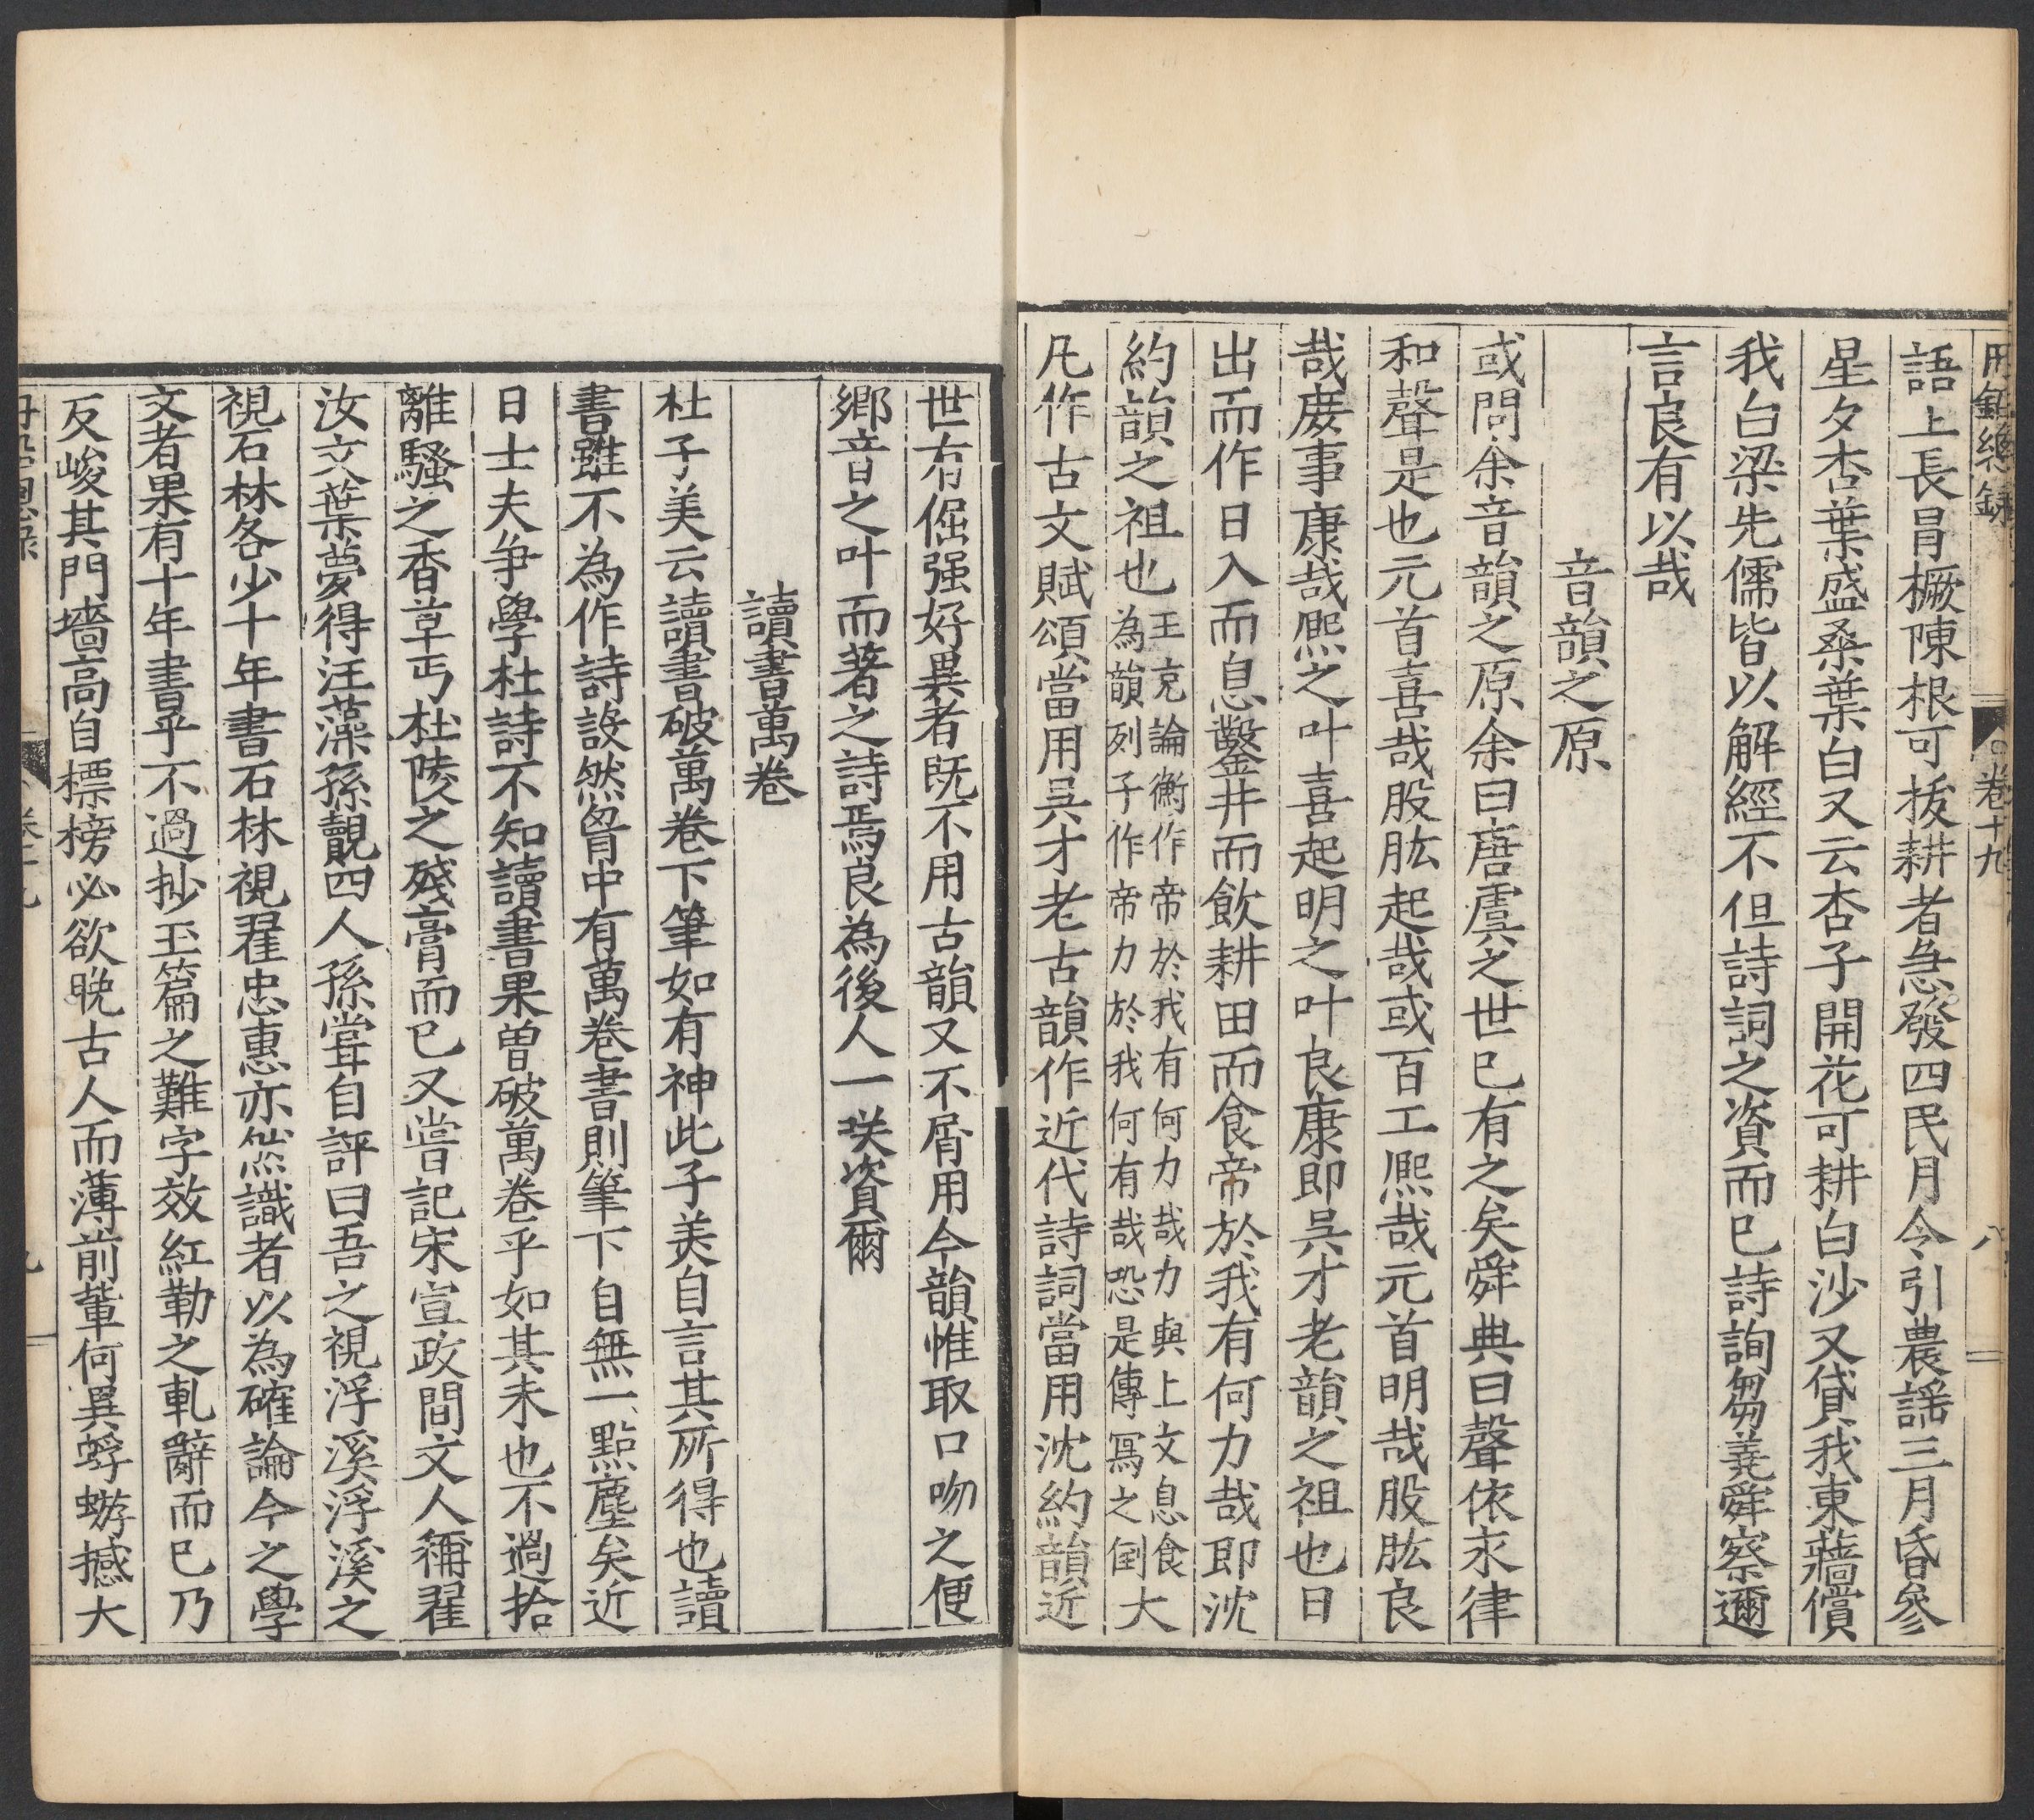 丹鉛總錄 卷十九 八
語上長冒橛陳根可拔耕者急發四民月令引農謡三月昏參
星夕杏葉盛桑葉白又云杏子開花可耕白沙又貸我東蘠償
我白梁先儒皆以解經不但詩詞之資而已詩詢芻蕘舜察邇
言良有以哉
音韻之原
或問余音韻之原余曰唐虞之世已有之矣舜典曰聲依永律
和聲是也元首喜哉股肱起哉或百工熈哉元首明哉股肱良
哉庻事康哉熈之叶喜起明之叶良康即吳才老韻之祖也日
出而作日入而息鑿井而飲耕田而食帝於我有何力哉即沈
約韻之祖也王充論衡作帝於我有何力哉力與上文息食
為韻列子作帝力於我何有哉恐是傳冩之倒大
凡作古文賦頌當用吳才老古韻作近代詩詞當用沈約韻近
世有倔强好異者既不用古韻又不屑用今韻惟取口吻之便
鄉音之叶而著之詩焉良為後人一咲資爾
讀書萬卷
杜子美云讀書破萬卷下筆如有神此子美自言其所得也讀
書雖不為作詩設然胷中有萬卷書則筆下自無一點塵矣近
日士夫争學杜詩不知讀書果曽破萬卷乎如其未也不過拾
離騷之香草丐杜陵之殘膏而已又嘗記宋宣政間文人稱翟
汝文葉夢得汪藻孫覿四人孫嘗自評曰吾之視浮溪浮溪之
視石林各少十年書石林視翟忠惠亦然識者以為確論今之學
文者果有十年書乎不過抄玉篇之難字效紅勒之軋辭而已乃
反峻其門墻高自標榜必欲晩古人而薄前軰何異蜉蝣撼大